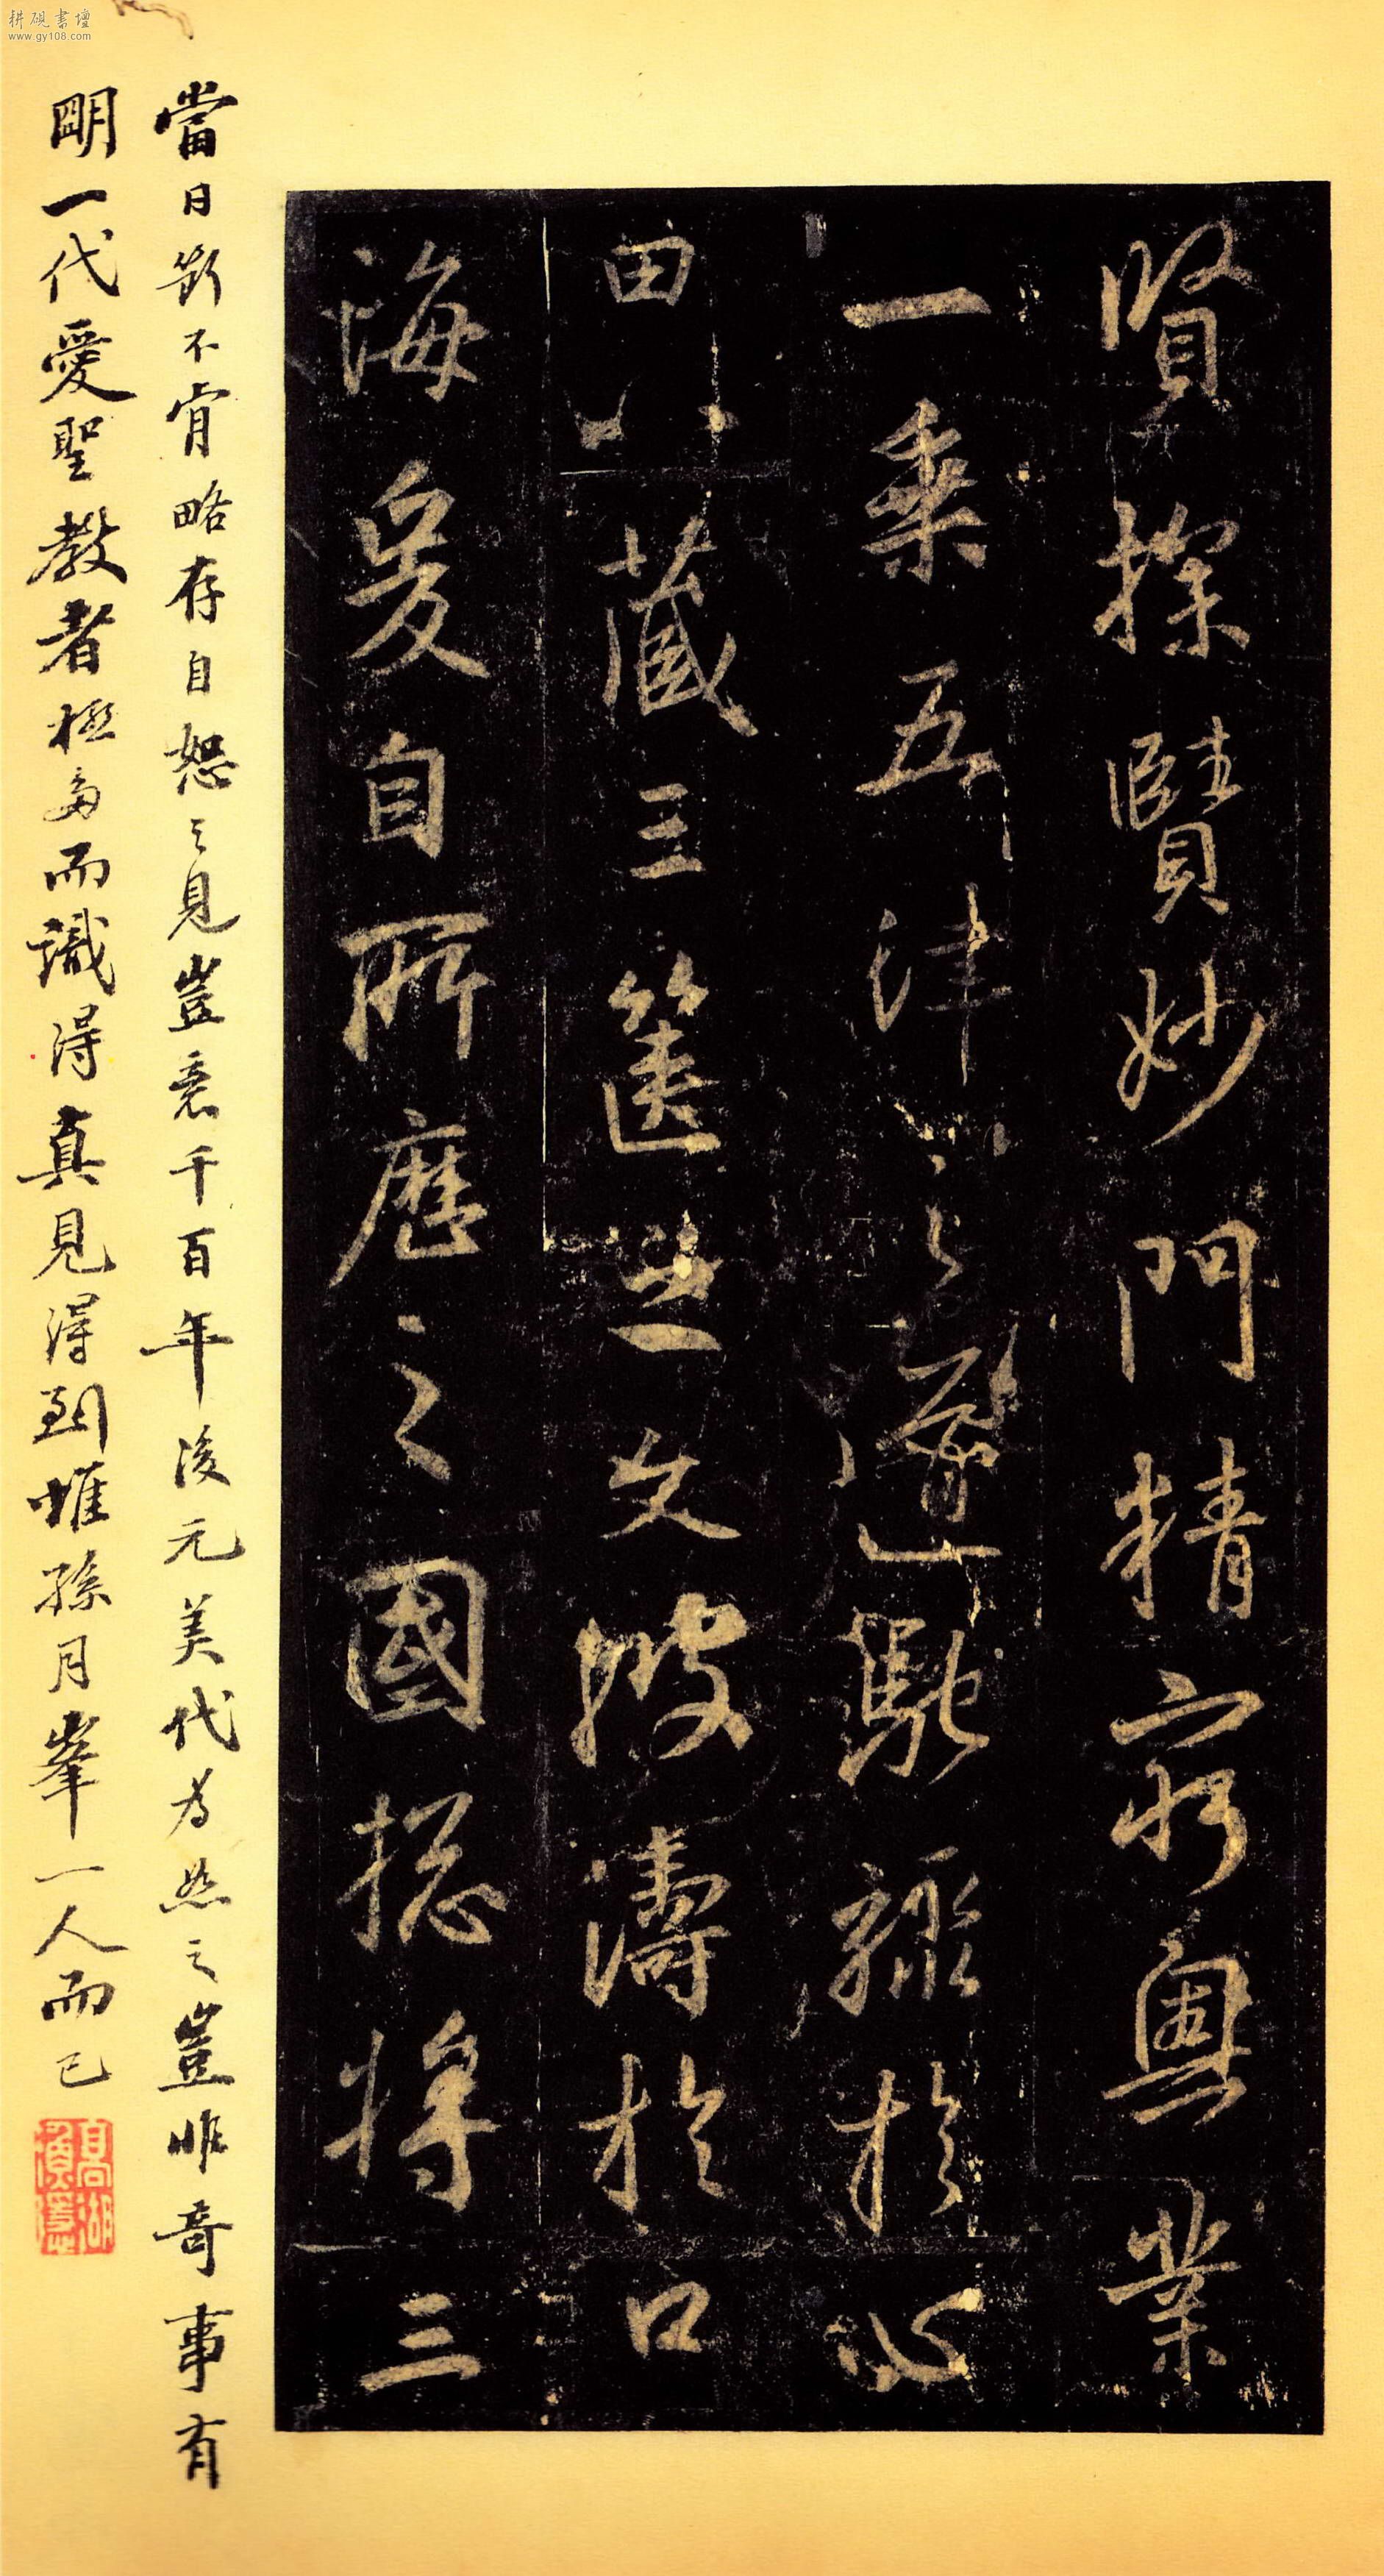 耕砚書壇
www.gy108.com
賢探賾妙門精窮奥業
一乗五律之道馳驟於心
田八藏三篋之文波濤於口
海爰自所歷之國捴將三
當日斷不肯略存自恕之見豈意千百年後元美代为恕之豈非奇事有
明一代愛聖教者極多而識得真見得到惟孫月峯一人而已
高湖